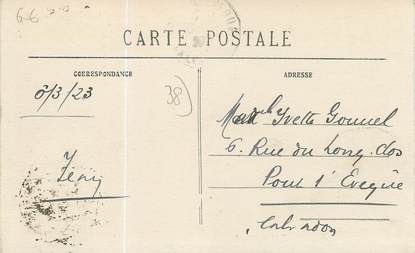 6-6
CARTE POSTALE
CORRESPONDANCE
ADRESSE
6/3/23
38
Yvette Gounel
6. Rue du Long-clos
Pont l'Evêque
Calvados